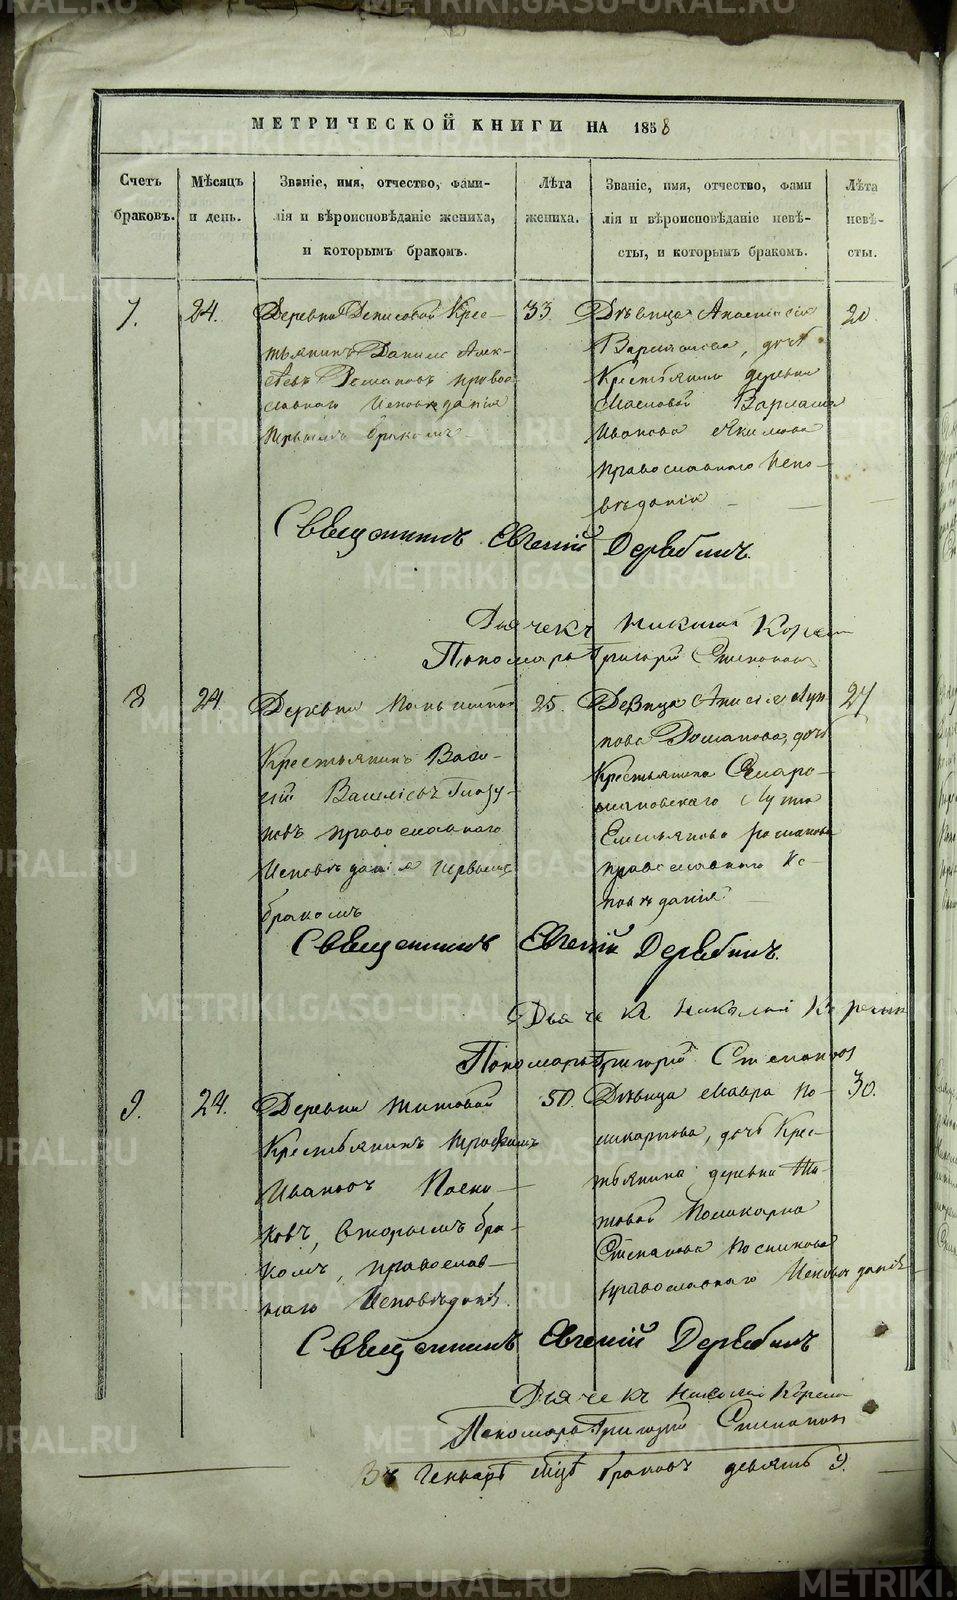 МЕТРИЧЕСКОЙ КНИГИ НА 1858
Счетъ браковъ.
Мѣсяцъ и день.
Званіе, имя, отчество, фами-
лія и вѣроисповѣданіе жениха,
и которымъ бракомъ.
Лѣта жениха.
Званіе, имя, отчество, фами
лія и вѣроисповѣданіе невѣ-
сты, и которымъ бракомъ.
Лѣта невѣ-
сты.
7.
24.
Деревни Денисовой Крес-
тьянинъ Данилъ Алек-
сѣевъ Романовъ правос-
лавнаго Исповѣданія
первымъ бракомъ
33.
Дѣвица Анастасія
Варламова, дочь
Крестьянина деревни
Масловой Варлама
Иванова Якимова
православнаго Испо-
вѣданія
20.
Священникъ Евгеній Дерябинъ.
Дьячекъ Николай
Пономарь Григорій Степановъ
8
24.
Деревни
Крестьянинъ Васи-
лій Васильевъ Глазу-
новъ православнаго
Исповѣданія первымъ
бракомъ
25.
Девица Анисія Луп-
пова Романова, дочь
Крестьянина Старо-
Луппа
Емельянова Романова
православнаго Ис-
повѣданія
27
Священникъ Евгеній Дерябинъ.
Дьячекъ Николай
Пономарь Григорій Степановъ
9.
24.
Деревни Титовой
Крестьянинъ Трофимъ
Ивановъ
вторымъ бра-
комъ, православ-
наго Исповѣданія.
50.
Дѣвица Мавра По-
ликарпова, дочь Крес-
тьянина деревни Ти-
товой Поликарпа
Степанова Посникова
православнаго Исповѣданія
30.
Священникъ Евгеній Дерябинъ
Дьячекъ Николай
Пономарь Григорій Степановъ
Въ Генварѣ мцѣ браковъ девять 9.
METRIKI.GASO-URAL.RU